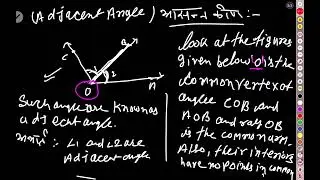 (Adjacent Angle) आसन्न कोण :-
C
B
1
2
O
A
Such angle are known as
adjacent angle.
∠1 and ∠2 are
Adjacent angle
Look at the figures
given below 'O' is the
common vertex of
angle COB and
AOB and ray OB
is the common arm.
Also, their interiors
have no points in common